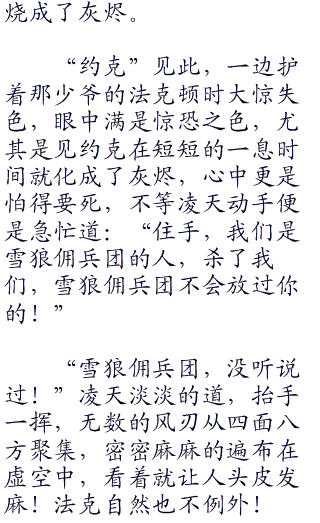 烧成了灰烬。
“约克”见此，一边护
着那少爷的法克顿时大惊失
色，眼中满是惊恐之色，尤
其是见约克在短短的一息时
间就化成了灰烬，心中更是
怕得要死，不等凌天动手便
是急忙道：“住手，我们是
雪狼佣兵团的人，杀了我
们，雪狼佣兵团不会放过你
的！”
“雪狼佣兵团，没听说
过！”凌天淡淡的道，抬手
一挥，无数的风刃从四面八
方聚集，密密麻麻的遍布在
虚空中，看着就让人头皮发
麻！法克自然也不例外！